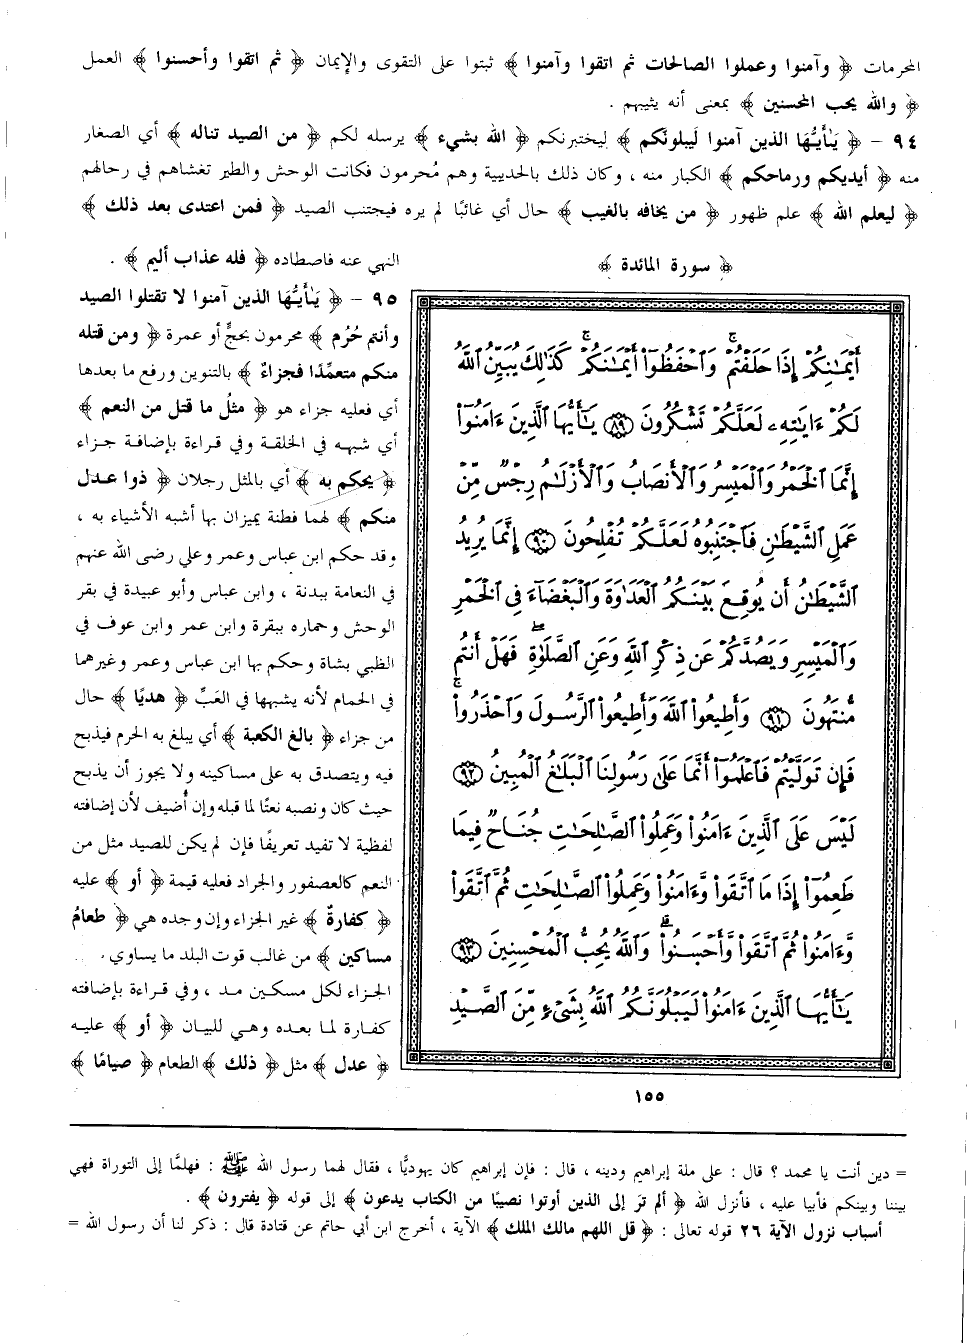 المحرمات ﴿ وآمنوا وعملوا الصالحات ثم اتقوا وآمنوا ﴾ ثبتوا على التقوى والإيمان ﴿ ثم اتقوا وأحسنوا ﴾ العمل
﴿ والله يحب المحسنين ﴾ بمعنى أنه يثيبهم .
٩٤ - ﴿ يَأيُّهَا الذين آمنوا لَيبلونَّكم ﴾ ليختبرنكم ﴿ الله بشيء ﴾ يرسله لكم ﴿ من الصيد تناله ﴾ أي الصغار
منه ﴿ أيديكم ورماحكم ﴾ الكبار منه ، وكان ذلك بالحديبية وهم مُحرمون فكانت الوحش والطير تغشاهم في رحالهم
﴿ ليعلم الله ﴾ علم ظهور ﴿ من يخافه بالغيب ﴾ حال أي غائبًا لم يره فيجتنب الصيد ﴿ فمن اعتدى بعد ذلك ﴾
النهي عنه فاصطاده ﴿ فله عذاب أليم ﴾ .
٩٥ - ﴿ يَأيُّهَا الذين آمنوا لا تقتلوا الصيد
وأنتم حُرُم ﴾ محرمون بحجٍّ أو عمرة ﴿ ومن قتله
منكم متعمِّدًا فجزاءٌ ﴾ بالتنوين ورفع ما بعدها
أي فعليه جزاء هو ﴿ مثلُ ما قتل من النعم ﴾
أي شبهه في الخلقة وفي قراءة بإضافة جزاء
﴿ يحكم به ﴾ أي بالمثل رجلان ﴿ ذوا عدل
منكم ﴾ لهما فطنة يميزان بها أشبه الأشياء به ،
وقد حكم ابن عباس وعمر وعلي رضى الله عنهم
في النعامة ببدنة ، وابن عباس وأبو عبيدة في بقر
الوحش وحماره ببقرة وابن عمر وابن عوف في
الظبي بشاة وحكم بها ابن عباس وعمر وغيرهما
في الحمام لأنه يشبهها في العَبِّ ﴿ هديًا ﴾ حال
من جزاء ﴿ بالغ الكعبة ﴾ أي يبلغ به الحرم فيذبح
فيه ويتصدق به على مساكينه ولا يجوز أن يذبح
حيث كان ونصبه نعتًا لما قبله وإن أُضيف لأن إضافته
لفظية لا تفيد تعريفًا فإن لم يكن للصيد مثل من
النعم كالعصفور والجراد فعليه قيمة ﴿ أو ﴾ عليه
﴿ كفارةٌ ﴾ غير الجزاء وإن وجده هي ﴿ طعامُ
مساكين ﴾ من غالب قوت البلد ما يساوي
الجزاء لكل مسكين مد ، وفي قراءة بإضافته
كفارة لما بعده وهي للبيان ﴿ أو ﴾ عليه
﴿ عدل ﴾ مثل ﴿ ذلك ﴾ الطعام ﴿ صيامًا ﴾
﴿ سورة المائدة ﴾
أَيْمَٰنِكُمْ إِذَا حَلَفْتُمْ ۚ وَٱحْفَظُوٓا۟ أَيْمَٰنَكُمْ ۚ كَذَٰلِكَ يُبَيِّنُ ٱللَّهُ
لَكُمْ ءَايَٰتِهِۦ لَعَلَّكُمْ تَشْكُرُونَ ٨٩ يَٰٓأَيُّهَا ٱلَّذِينَ ءَامَنُوٓا۟
إِنَّمَا ٱلْخَمْرُ وَٱلْمَيْسِرُ وَٱلْأَنصَابُ وَٱلْأَزْلَٰمُ رِجْسٌ مِّنْ
عَمَلِ ٱلشَّيْطَٰنِ فَٱجْتَنِبُوهُ لَعَلَّكُمْ تُفْلِحُونَ ٩٠ إِنَّمَا يُرِيدُ
ٱلشَّيْطَٰنُ أَن يُوقِعَ بَيْنَكُمُ ٱلْعَدَٰوَةَ وَٱلْبَغْضَآءَ فِى ٱلْخَمْرِ
وَٱلْمَيْسِرِ وَيَصُدَّكُمْ عَن ذِكْرِ ٱللَّهِ وَعَنِ ٱلصَّلَوٰةِ ۖ فَهَلْ أَنتُم
مُّنتَهُونَ ٩١ وَأَطِيعُوا۟ ٱللَّهَ وَأَطِيعُوا۟ ٱلرَّسُولَ وَٱحْذَرُوا۟ ۚ
فَإِن تَوَلَّيْتُمْ فَٱعْلَمُوٓا۟ أَنَّمَا عَلَىٰ رَسُولِنَا ٱلْبَلَٰغُ ٱلْمُبِينُ ٩٢
لَيْسَ عَلَى ٱلَّذِينَ ءَامَنُوا۟ وَعَمِلُوا۟ ٱلصَّٰلِحَٰتِ جُنَاحٌ فِيمَا
طَعِمُوٓا۟ إِذَا مَا ٱتَّقَوا۟ وَّءَامَنُوا۟ وَعَمِلُوا۟ ٱلصَّٰلِحَٰتِ ثُمَّ ٱتَّقَوا۟
وَّءَامَنُوا۟ ثُمَّ ٱتَّقَوا۟ وَّأَحْسَنُوا۟ ۗ وَٱللَّهُ يُحِبُّ ٱلْمُحْسِنِينَ ٩٣
يَٰٓأَيُّهَا ٱلَّذِينَ ءَامَنُوا۟ لَيَبْلُوَنَّكُمُ ٱللَّهُ بِشَىْءٍ مِّنَ ٱلصَّيْدِ
١٥٥
= دين أنت يا محمد ؟ قال : على ملة إبراهيم ودينه ، قال : فإن إبراهيم كان يهوديًّا ، فقال لهما رسول الله ﷺ : فهلمَّا إلى التوراة فهي
بيننا وبينكم فأبيا عليه ، فأنزل الله ﴿ ألم ترَ إلى الذين أوتوا نصيبًا من الكتاب يدعون ﴾ إلى قوله ﴿ يفترون ﴾ .
أسباب نزول الآية ٢٦ قوله تعالى : ﴿ قل اللهم مالك الملك ﴾ الآية ، أخرج ابن أبي حاتم عن قتادة قال : ذكر لنا أن رسول الله =